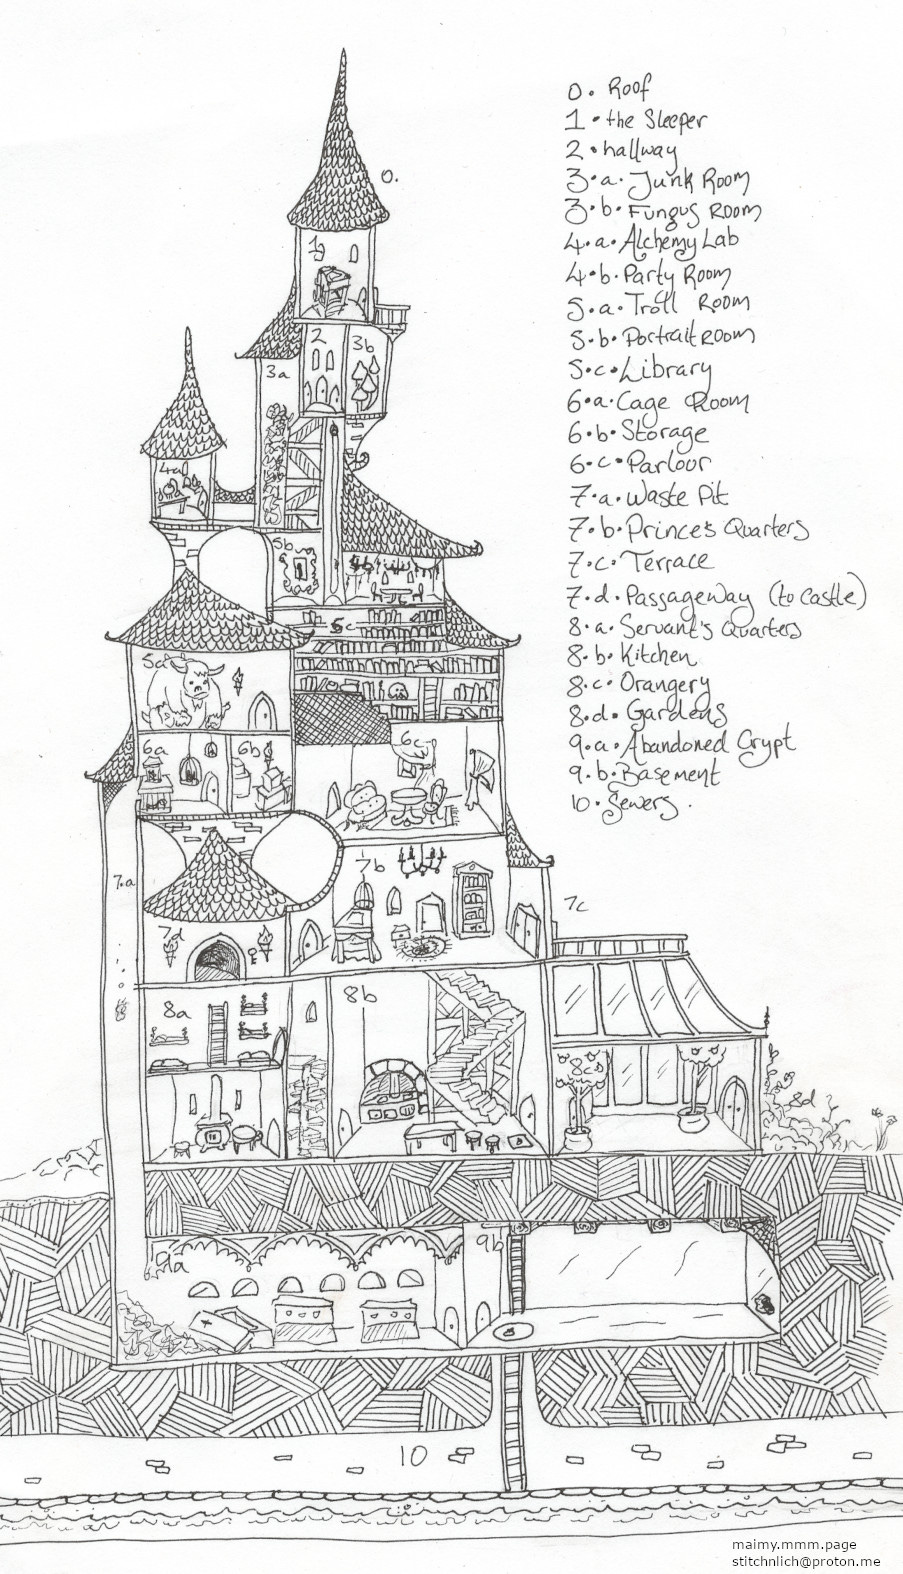 0. Roof
1. the Sleeper
2. hallway
3.a. Junk Room
3.b. Fungus Room
4.a. Alchemy Lab
4.b. Party Room
5.a. Troll Room
5.b. Portrait Room
5.c. Library
6.a. Cage Room
6.b. Storage
6.c. Parlour
7.a. Waste Pit
7.b. Prince's Quarters
7.c. Terrace
7.d. Passageway (to Castle)
8.a. Servant's Quarters
8.b. Kitchen
8.c. Orangery
8.d. Gardens
9.a. Abandoned Crypt
9.b. Basement
10. Sewers.
0.
1
2
3b
3a
4a
5b
4b
5c
5a
6c
6a
6b
7b
7.a
7c
7d
8b
8a
8c
8d
9b
9a
10
maimy.mmm.page
stitchnlich@proton.me